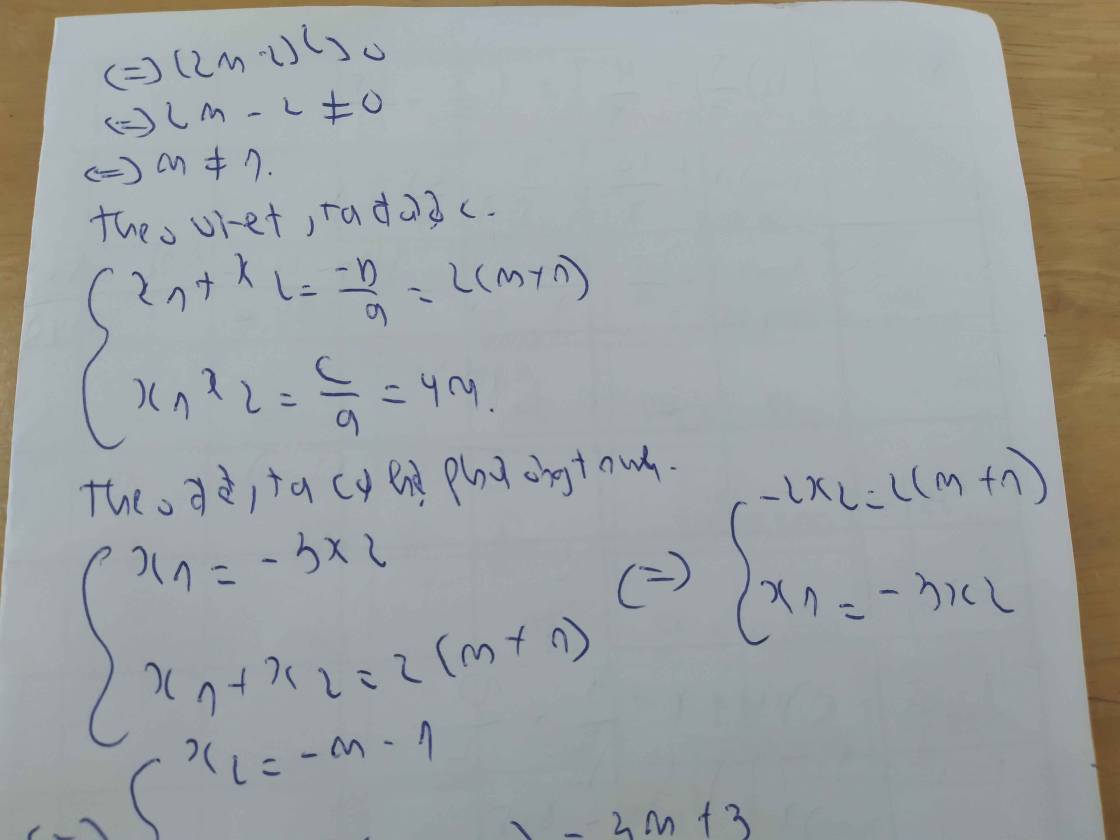 (=) (2m-2)² > 0
(=) 2m - 2 ≠ 0
(=) m ≠ 1.
Theo vi-et, ta được.
{ x1 + x2 = -b/a = 2(m+1)
x1x2 = c/a = 4m.
Theo đề, ta có hệ phương trình.
{ x1 = -3x2 (=) { -2x2 = 2(m+1)
x1 + x2 = 2(m+1) x1 = -3x2
{ x2 = -m - 1
(=) = 3m + 3